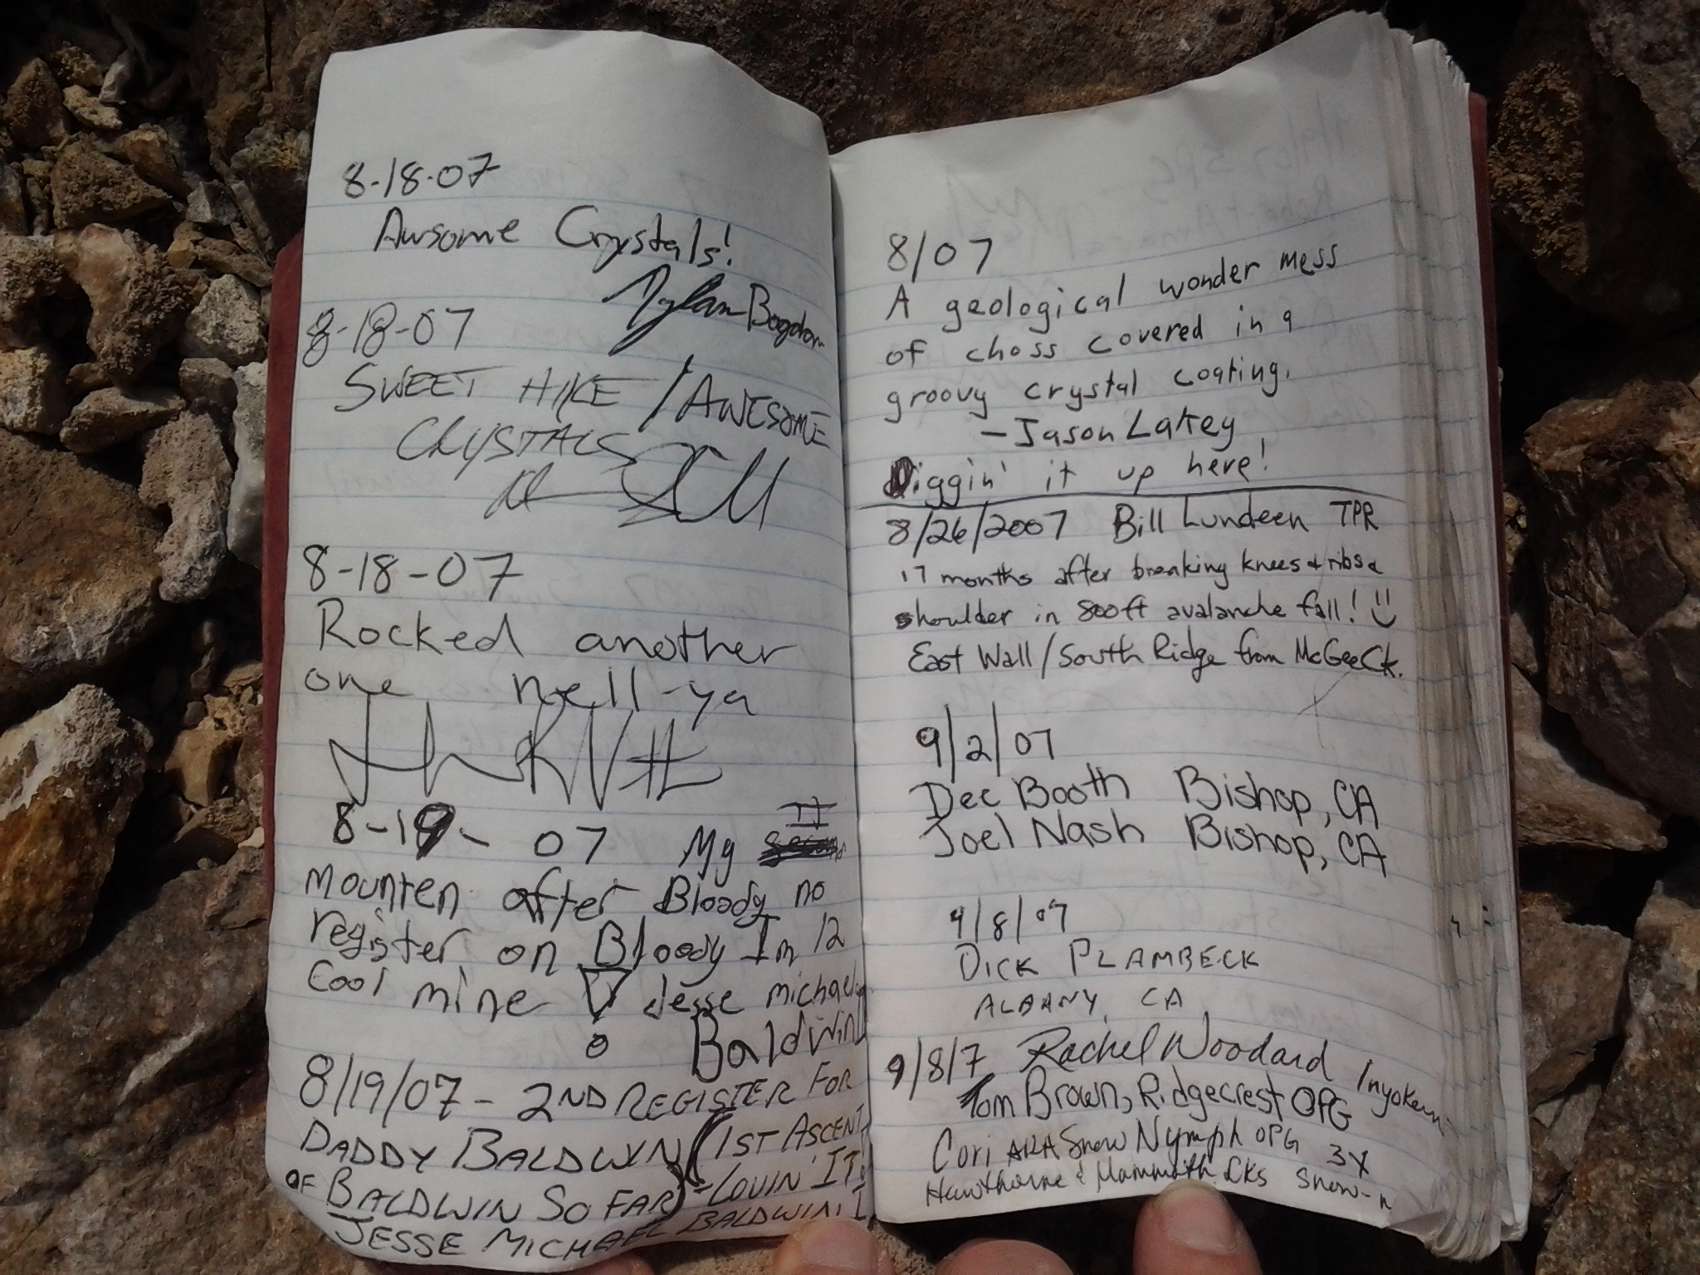 8-18-07
Awsome Crystals!
Dylan Bogdon
8-18-07
SWEET HIKE / AWESOME
CRYSTALS
8-18-07
Rocked another
one hell-ya
8-19-07 My II
mounten after Bloody no
register on Bloody In 12
Cool mine Jesse michael
Baldwin
8/19/07 - 2ND REGISTER FOR
DADDY BALDWIN (1ST ASCENT
OF BALDWIN SO FAR) - LOVIN' IT!
JESSE MICHAEL BALDWIN, I
8/07
A geological wonder mess
of choss covered in a
groovy crystal coating.
- Jason Lakey
Diggin' it up here!
8/26/2007 Bill Lundeen TPR
17 months after breaking knees + ribs &
shoulder in 800ft avalanche fall!
East Wall/South Ridge from McGee Ck.
9/2/07
Dee Booth Bishop, CA
Joel Nash Bishop, CA
9/8/07
DICK PLAMBECK
ALBANY, CA
9/8/7 Rachel Woodard Inyokern
Tom Brown, Ridgecrest OPG
Cori AKA Snow Nymph OPG 3X
Hawthorne & Mammoth Lks